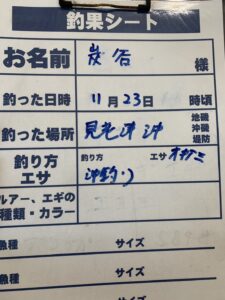 釣果シート
お名前 炭谷 様
釣った日時 11月23日 時頃
釣った場所 見老津 沖 地磯 沖磯 堤防
釣り方 エサ 釣り方 沖釣り エサ オキアミ
ルアー、エギの種類・カラー
魚種 サイズ
魚種 サイズ